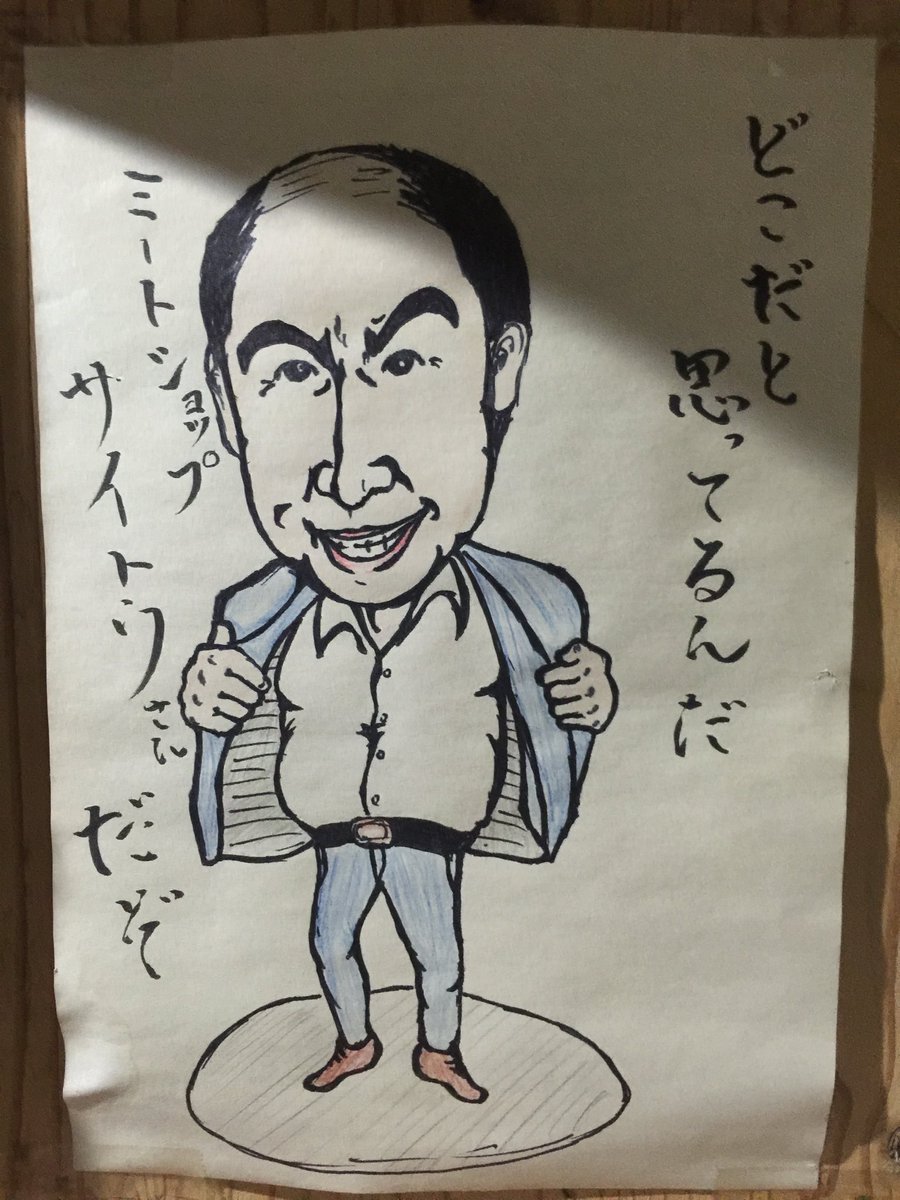 どこだと
思ってるんだ
ミートショップ
サイトウさん
だぞ